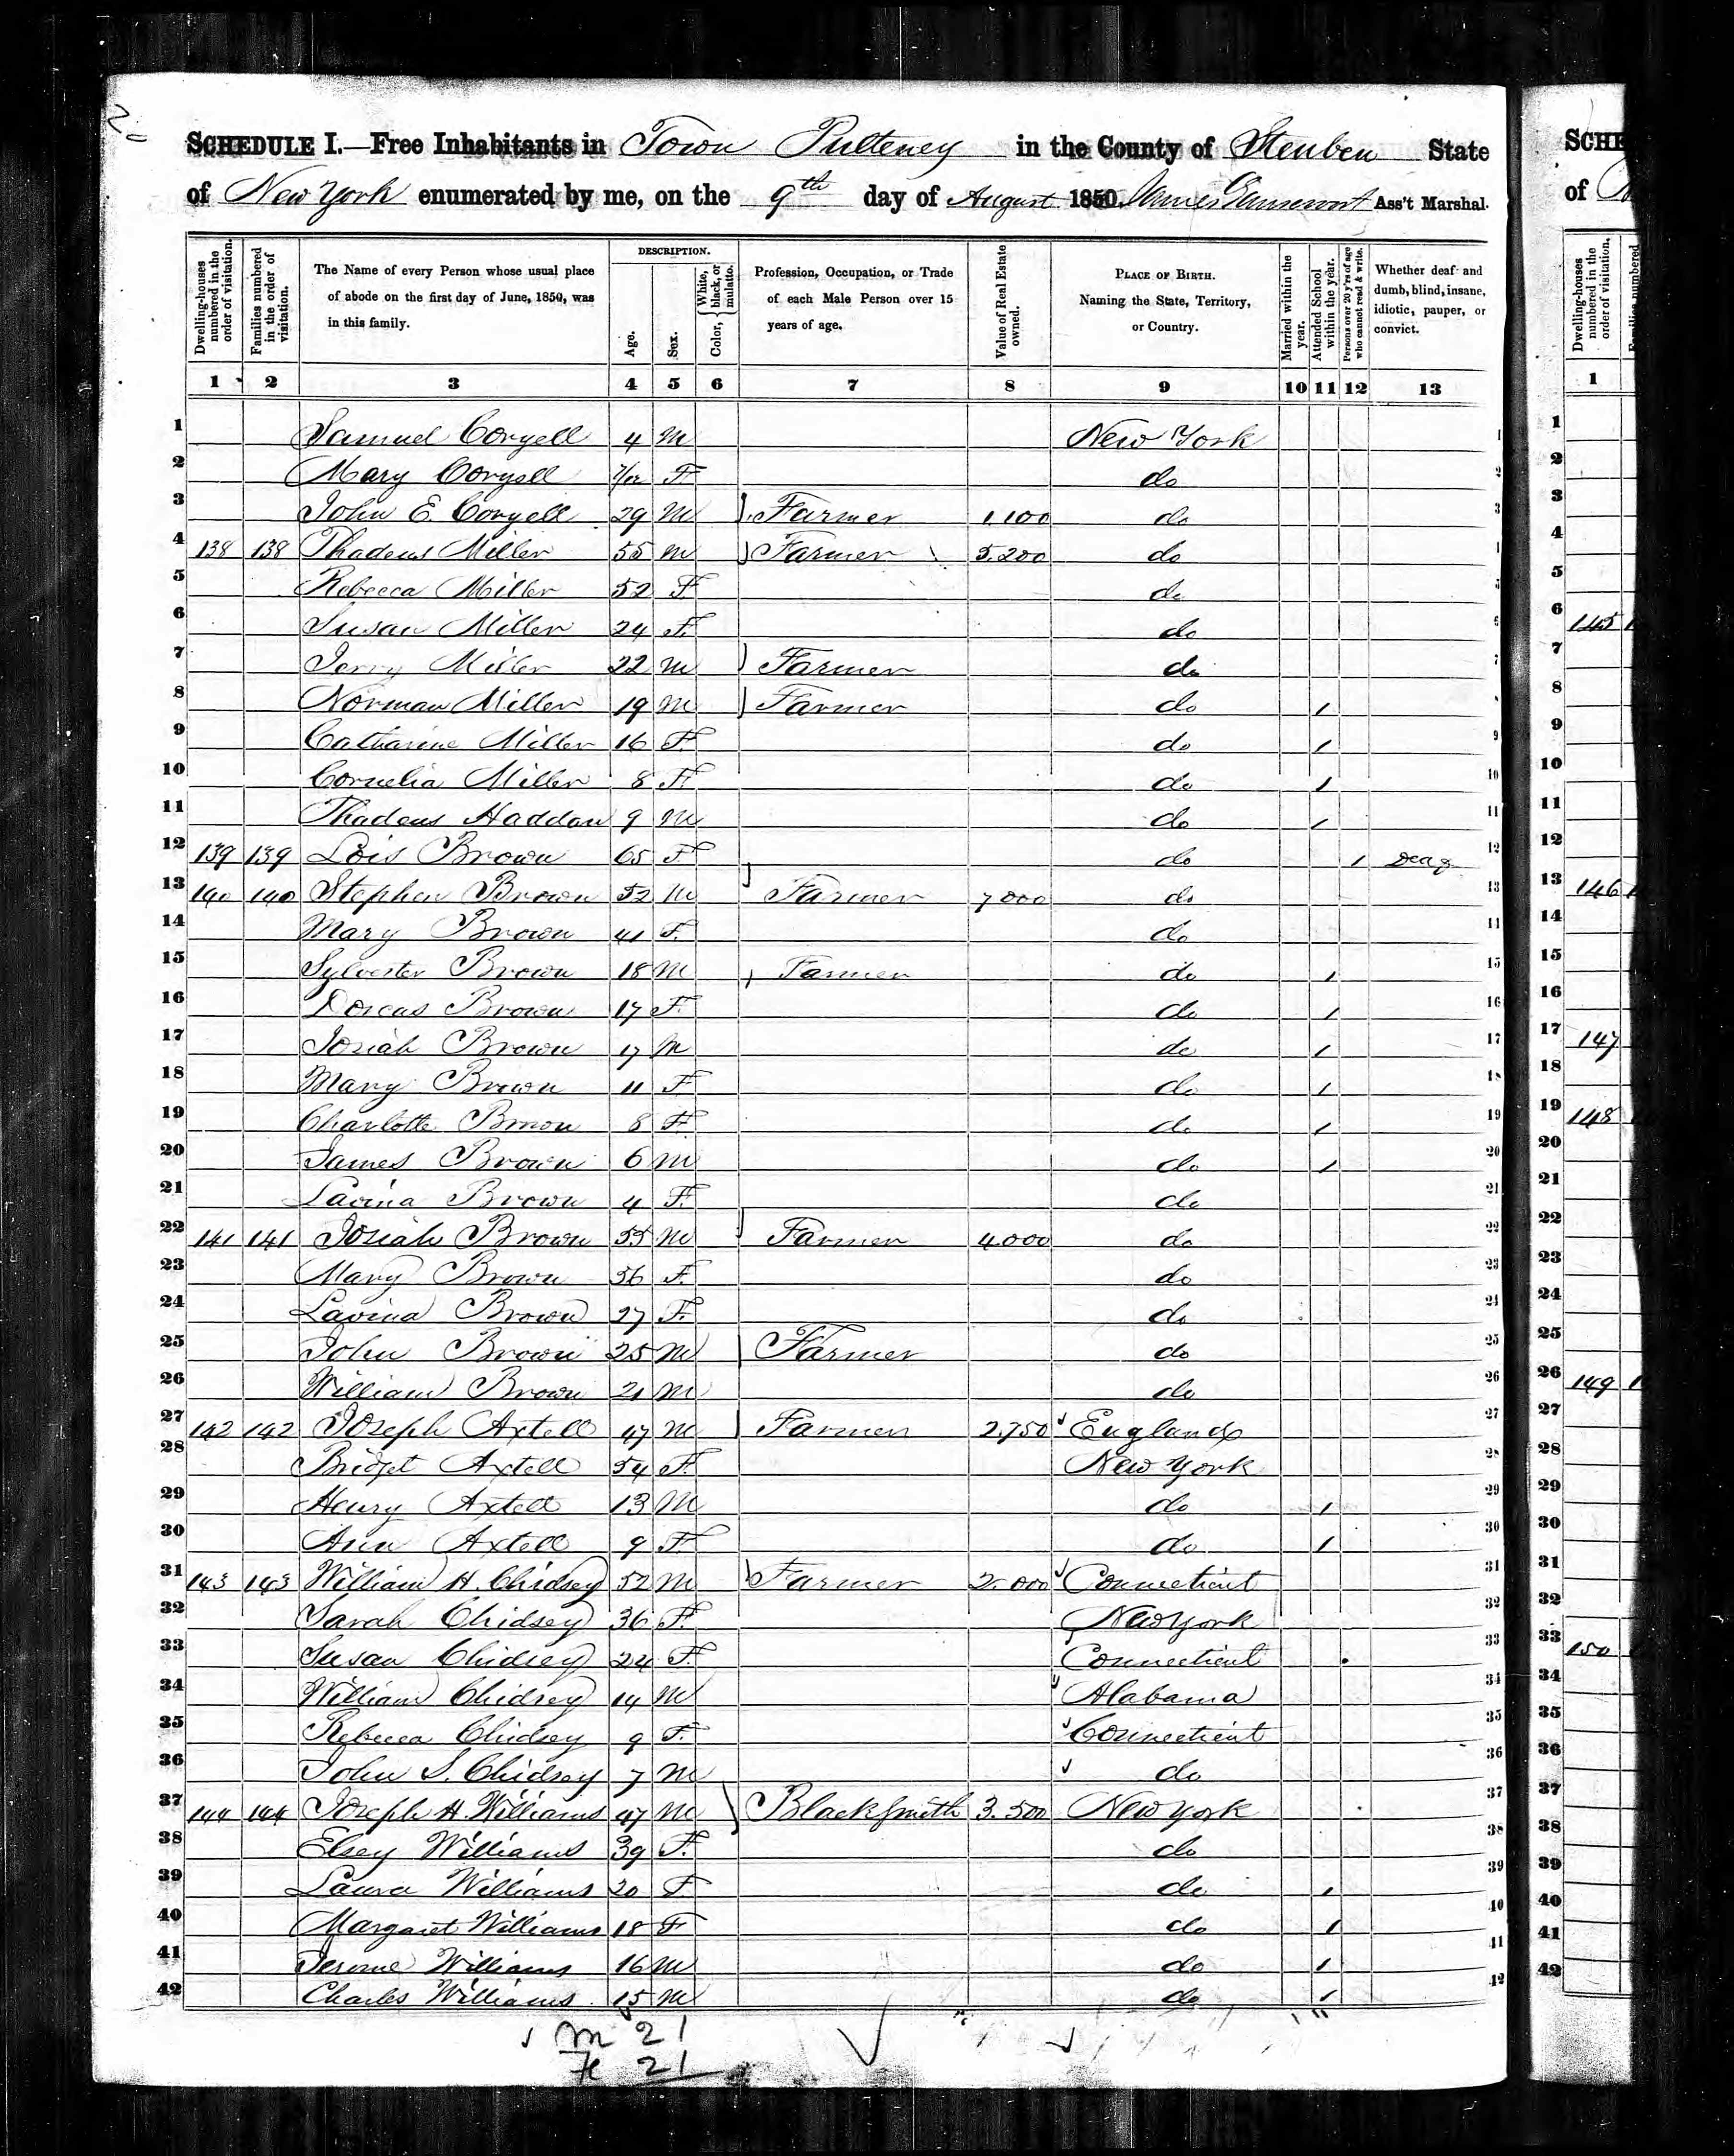 20
SCHEDULE I.—Free Inhabitants in Town Pulteney in the County of Steuben State
of New York enumerated by me, on the 9th day of August 1850. James Gansevoort Ass't Marshal.
Dwelling-houses numbered in the order of visitation.
Families numbered in the order of visitation.
The Name of every Person whose usual place of abode on the first day of June, 1850, was in this family.
DESCRIPTION.
Age.
Sex.
Color, { White, black, or mulatto.
Profession, Occupation, or Trade of each Male Person over 15 years of age.
Value of Real Estate owned.
PLACE OF BIRTH. Naming the State, Territory, or Country.
Married within the year.
Attended School within the year.
Persons over 20 y'rs of age who cannot read & write.
Whether deaf and dumb, blind, insane, idiotic, pauper, or convict.
1 2 3 4 5 6 7 8 9 10 11 12 13
1 Samuel Coryell 4 M New York 1
2 Mary Coryell 7/12 F do 2
3 John E. Coryell 29 M Farmer 1100 do 3
4 138 138 Thadeus Miller 55 M Farmer 5.200 do
5 Rebecca Miller 52 F do 5
6 Susan Miller 24 F. do 6
7 Jerry Miller 22 M Farmer do 7
8 Norman Miller 19 M Farmer do /
9 Catharine Miller 16 F do / 9
10 Cornelia Miller 8 F. do / 10
11 Thadeus Haddon 9 M do / 11
12 139 139 Lois Brown 65 F do / Deaf 12
13 140 140 Stephen Brown 52 M Farmer 7000 do 13
14 Mary Brown 41 F. do
15 Sylvester Brown 18 M Farmer do / 15
16 Dorcas Brown 17 F. do / 16
17 Josiah Brown 17 M do / 17
18 Mary Brown 11 F do / 18
19 Charlotte Brown 8 F. do / 19
20 James Brown 6 M do / 20
21 Lavina Brown 4 F. do 21
22 141 141 Josiah Brown 55 M Farmer 4000 do 22
23 Mary Brown 56 F. do 23
24 Lavina Brown 27 F. do 24
25 John Brown 25 M Farmer do 25
26 William Brown 21 M do 26
27 142 142 Joseph Axtell 47 M Farmer 2,750 England 27
28 Bridget Axtell 54 F. New York 28
29 Henry Axtell 13 M do / 29
30 Ann Axtell 9 F. do / 30
31 143 143 William H. Chidsey 52 M Farmer 2.000 Connecticut 31
32 Sarah Chidsey 36 F. New York 32
33 Susan Chidsey 24 F. Connecticut 33
34 William Chidsey 14 M Alabama 34
35 Rebecca Chidsey 9 F. Connecticut 35
36 John S. Chidsey 7 M do 36
37 144 144 Joseph H. Williams 47 M Blacksmith 3.500 New York 37
38 Elsey Williams 39 F. do 38
39 Laura Williams 20 F do / 39
40 Margaret Williams 18 F do / 40
41 Jerome Williams 16 M do / 41
42 Charles Williams 15 M do / 42
m 21
Fe 21
SCHE
of
Dwelling-houses numbered in the order of visitation.
Families numbered
1
1
2
3
4
5
6 145
7
8
9
10
11
12
13 146
14
15
16
17 147
18
19 148
20
21
22
23
24
25
26 149
27
28
29
30
31
32
33 150
34
35
36
37
38
39
40
41
42